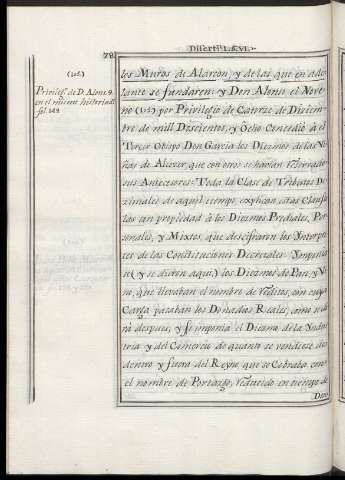 78
Disert.ⁿ LXVI.
(115)
Privileg.º de D. Alonso 9.
en el mismo historiad.
fol. 148.
los Muros de Alarcon, y de las que en ade-
lante se fundaren: y Don Alonso el Nove-
no (115) por Privilegio de Catorce de Diciem-
bre de mill Doscientos, y Ocho Concedió à el
Tercer Obispo Don Garcia los Diezmos de las
de Alcozer, que con otros se havian
sus Antecesores: Toda la Clase de Tributos De-
zimales de aquel tiempo, explican estas Clausu-
las con propiedad à los Diezmos Prediales, Per-
sonales, y Mixtos, que descifraron los Ynterpre-
tes de las Constituciones Decretales: Ympusie-
(y se dieron aqui) los Diezmos de Pan, y Vi-
no, que llevaban el nombre de Reditos, con cuya
Carga pasaban los Donados Reales, como se di-
rá despues, y se imponia el Diezmo de la Yndus-
tria y del Comercio de quanto se vendiese de
dentro y fuera del Reyno, que se Cobraba con
el nombre de Portazgo, reducido en tiempo de
Don